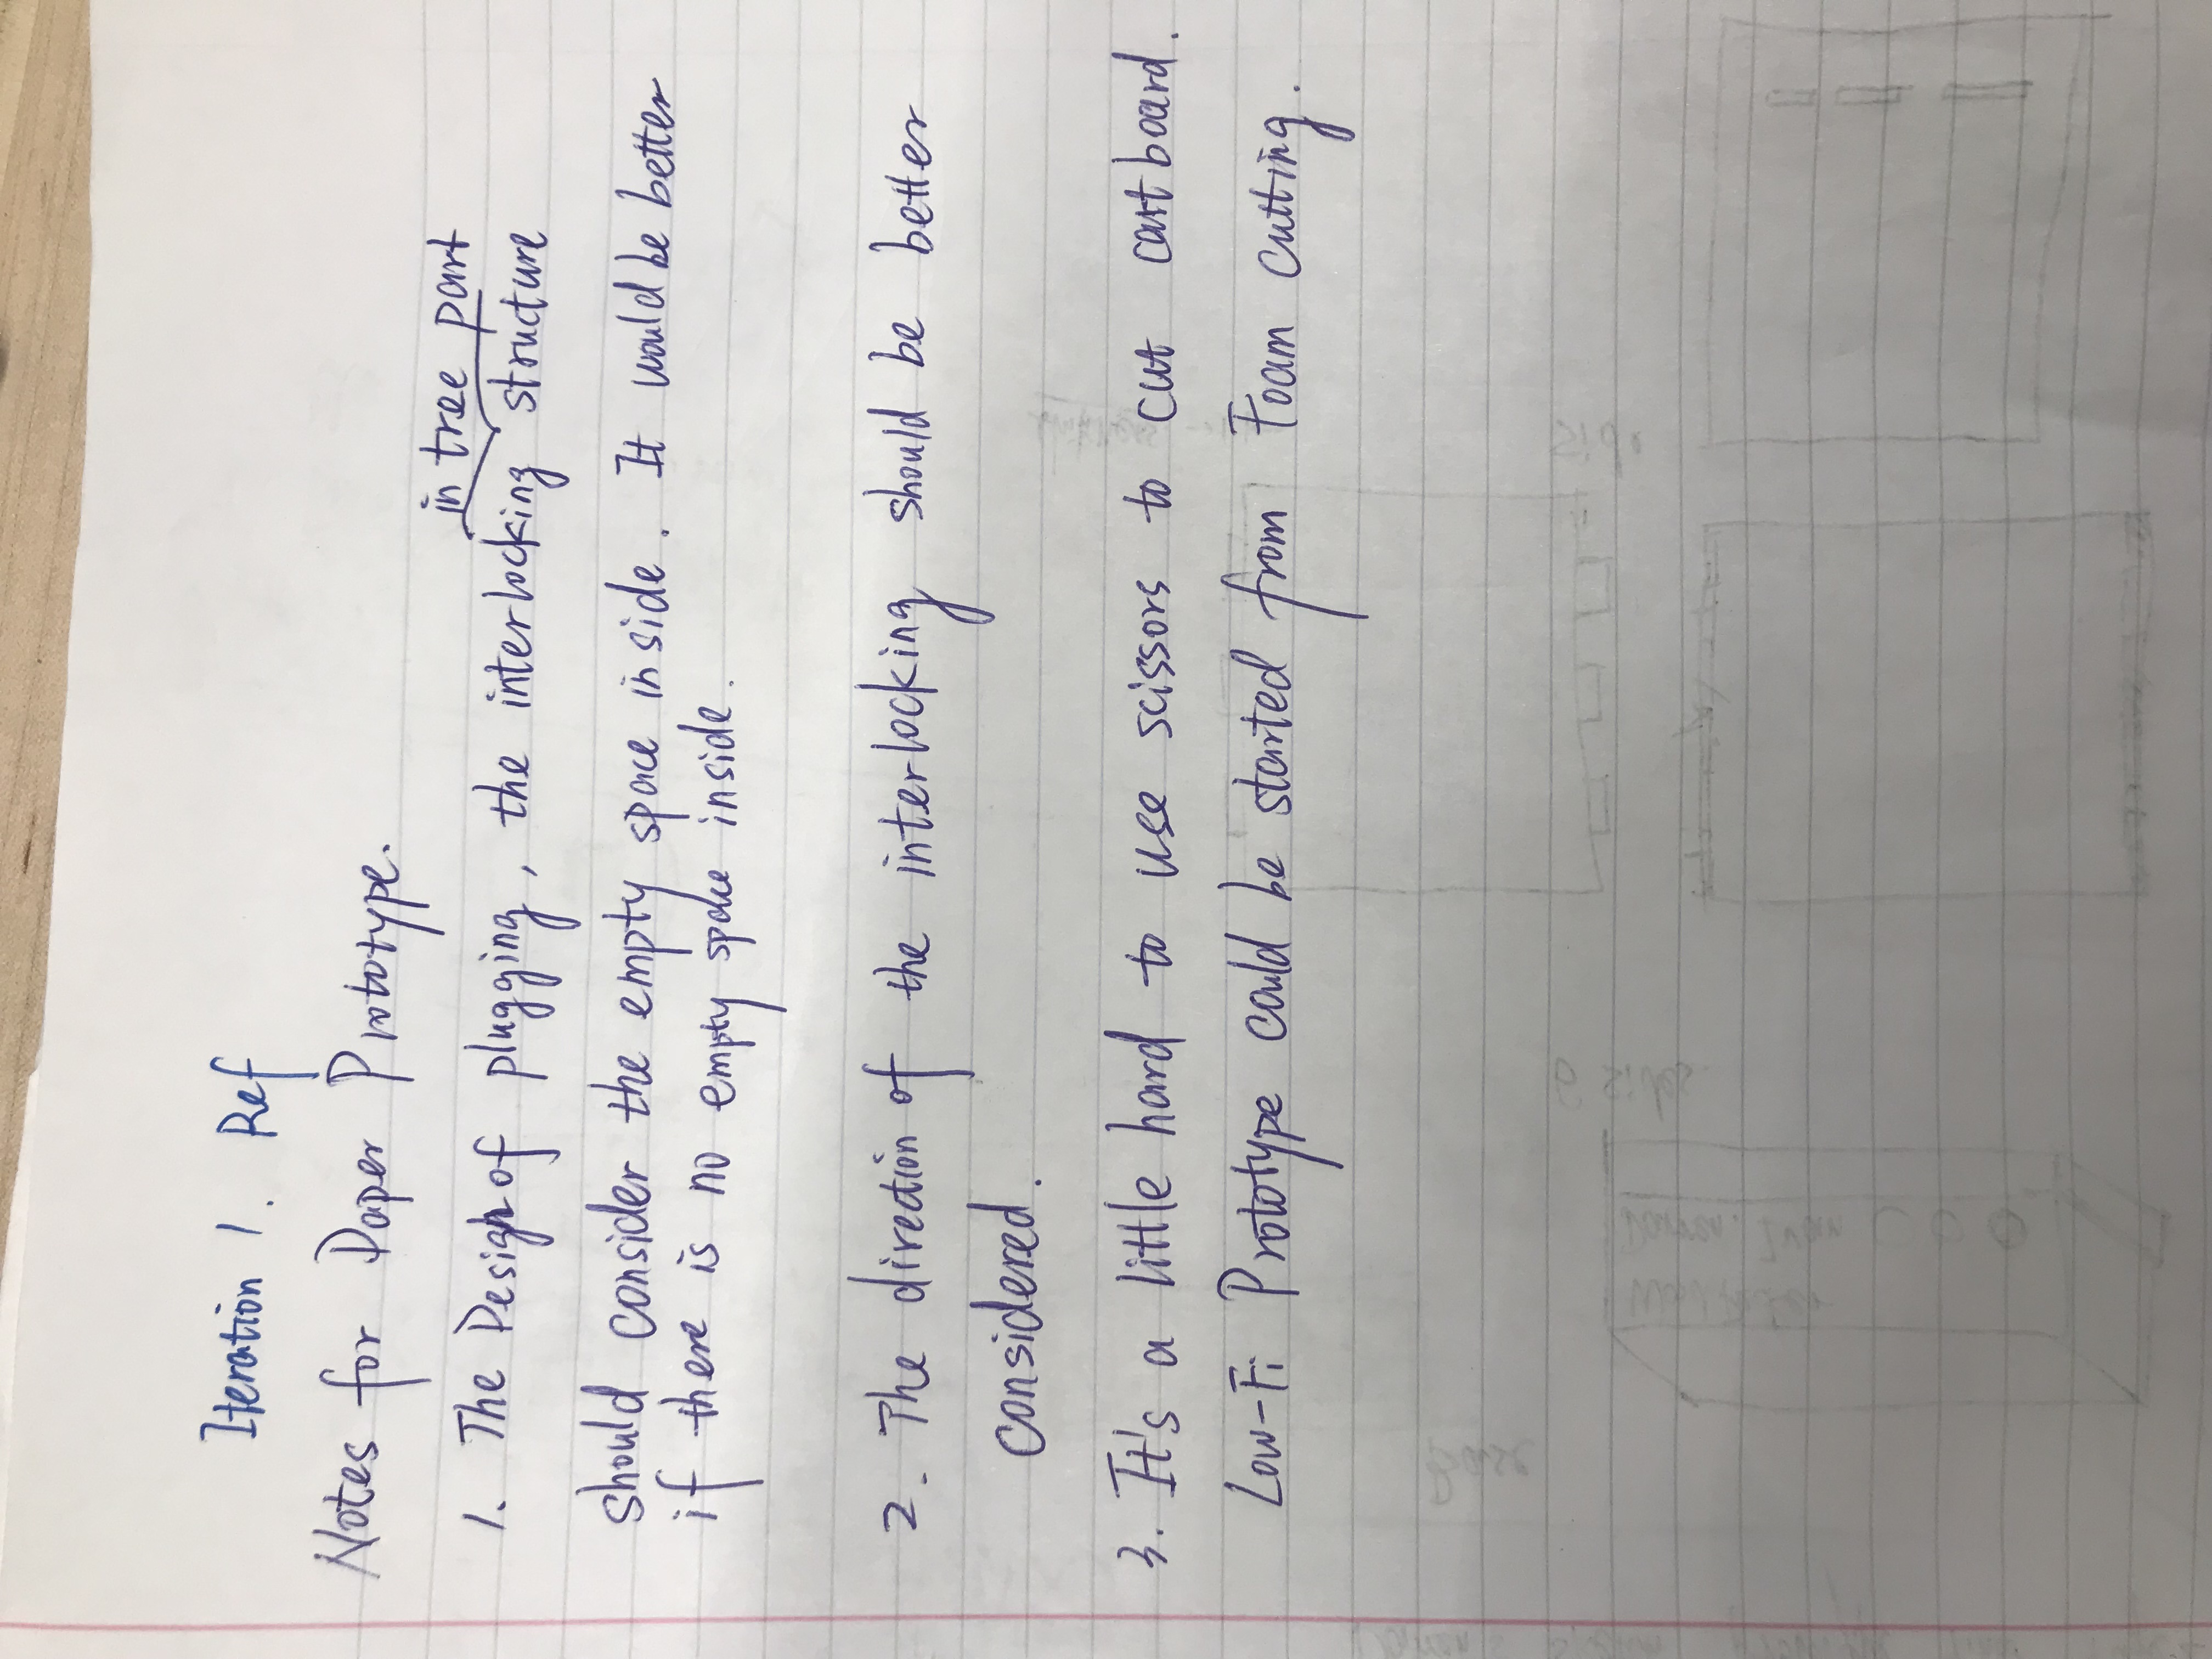 Iteration 1. Ref
Notes for Paper Prototype.
in tree part
1. The Design of plugging, the interlocking structure
should consider the empty space inside. It would be better
if there is no empty space inside.
2. The direction of the interlocking should be better
considered.
3. It's a little hard to use scissors to cut cartboard.
Low-Fi Prototype could be started from Foam cutting.